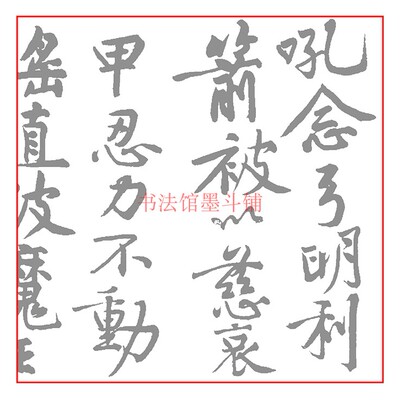 吼念弓明利
箭被以慈哀
甲忍力不動
搖直破魔王
书法馆墨斗铺